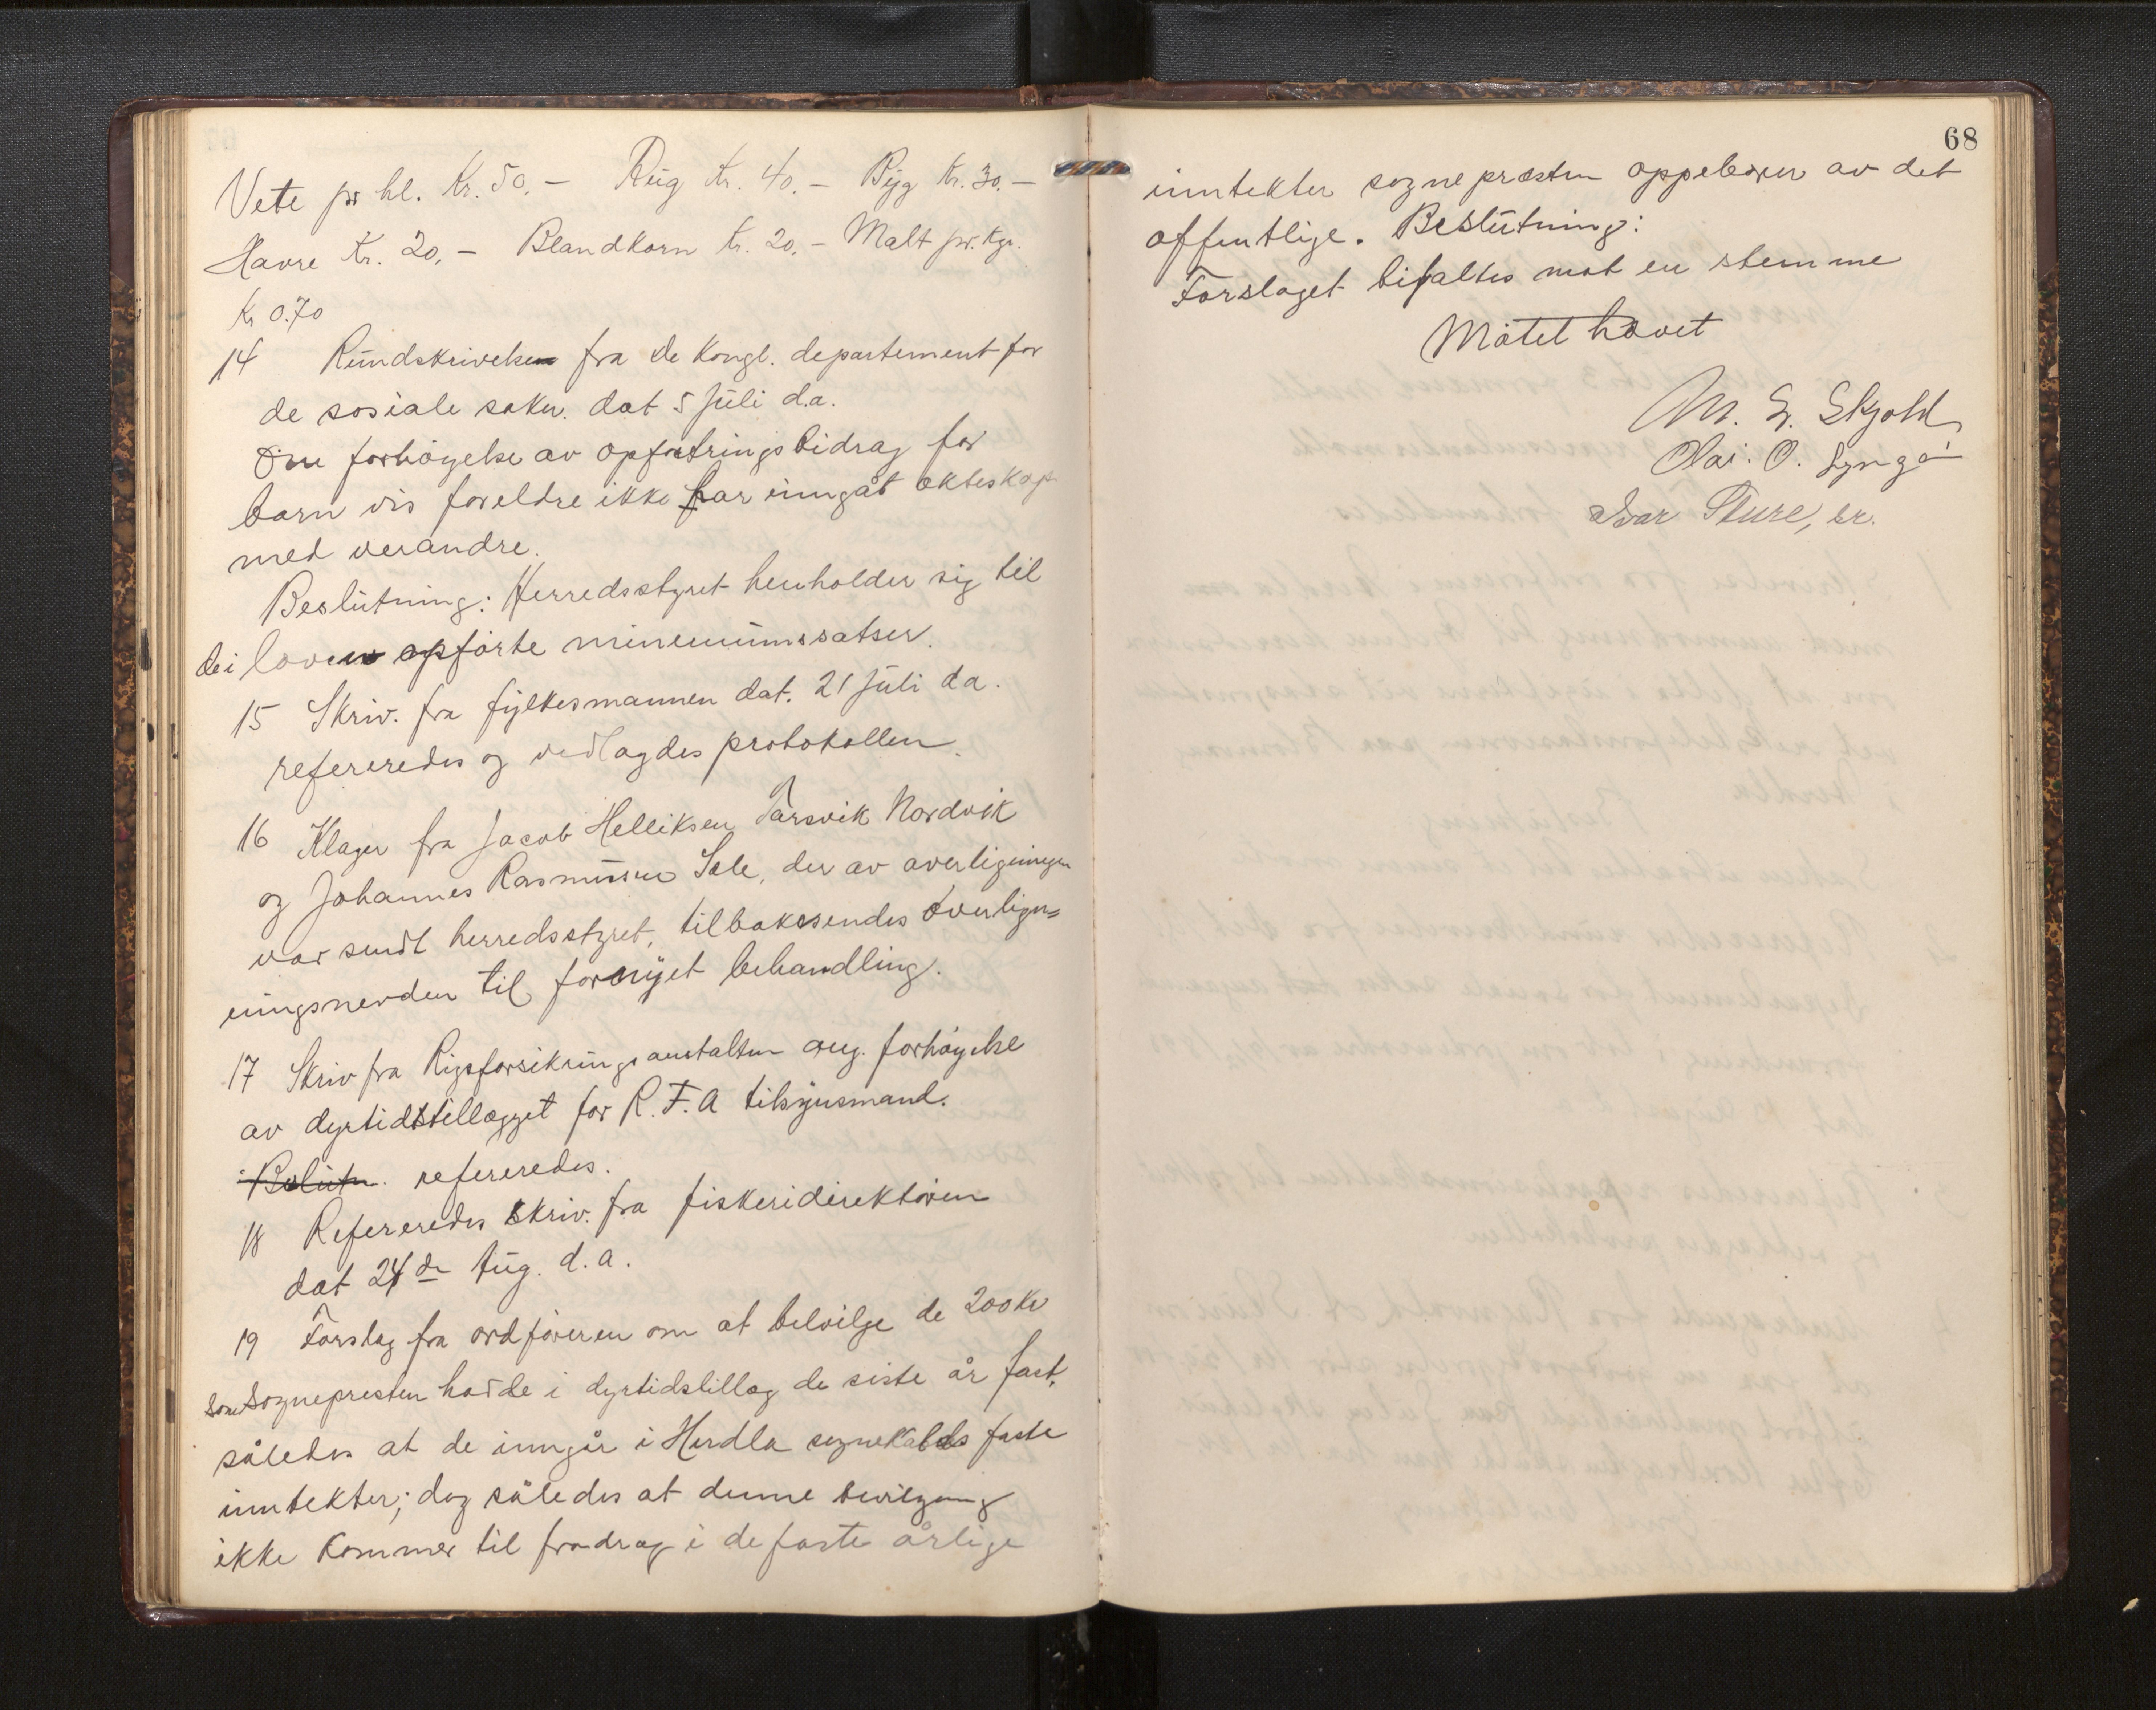 Vete pr hl. Kr. 50,- Rug Kr. 40.- Byg Kr. 30,-
Havre Kr. 20,- Blandkorn Kr. 20,- Malt pr. Kgr.
Kr 0.70
14 Rundskrivelse fra de Kongl. departement for
de sosiale saker. dat 5 Juli d.a.
Om forhöyelse av opfostringsbidrag for
barn vis foreldre ikke har inngåt ekteskap
med verandre.
Beslutning: Herredsstyret henholder sig til
de i loven opförte minemumssatser.
15 Skriv. fra fylkesmannen dat. 21 Juli d a.
refereredes og vedlagdes protokollen.
16 Klager fra Jacob Helliksen Tarsvik Nordvik
og Johannes Rasmussen Sele, der av overligningen
var sendt herredsstyret, tilbakesendes overlign=
ningsnevden til fornyet behandling.
17 Skriv fra Rigsforsikringsanstalten ang. forhöyelse
av dyrtidstillegget for R.F.A tilsynsmand.
Beslutn. refereredes.
18 Refereredes skriv. fra fiskeridirektören
dat 24de Aug. d.a.
19 Forslag fra ordföreren om at belvilge de 200 Kr
som Sognepresten hadde i dyrtidstilleg de siste år fast,
således at de inngår i Herdla sognekalds faste
inntekter; dog således at denne bevilgning
ikke kommer til fradrag i de faste årlige
68
inntekter sognepresten oppebærer av det
offentlige. Beslutning:
Forslaget bifaltes mot en stemme
Mötet hævet
M. E. Skjold
Olai. O. Lyngö
Ivar Sture, sr.